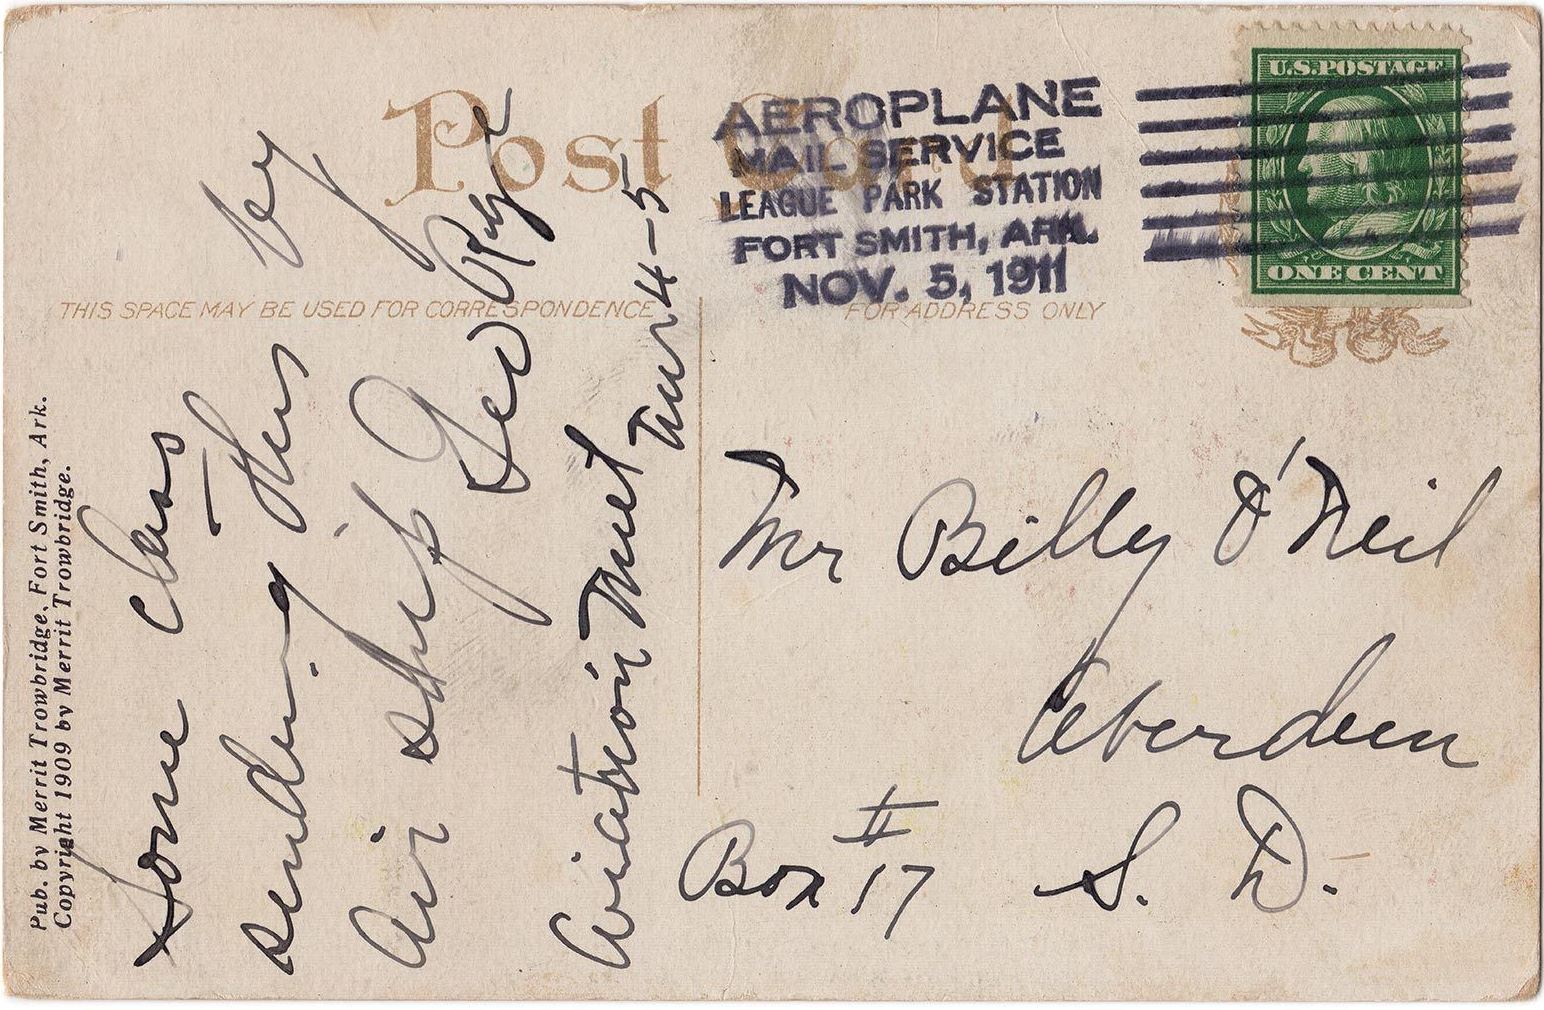 Post Card
THIS SPACE MAY BE USED FOR CORRESPONDENCE
FOR ADDRESS ONLY
AEROPLANE
MAIL SERVICE
LEAGUE PARK STATION
FORT SMITH, ARK.
NOV. 5, 1911
U.S.POSTAGE
ONE CENT
Pub. by Merrit Trowbridge, Fort Smith, Ark.
Copyright 1909 by Merrit Trowbridge.
Some Class
sending this by
Air ship Geo
Aviation Meet 4-5
Mr Billy O'Neil
Aberdeen
Box # 17 S. D.